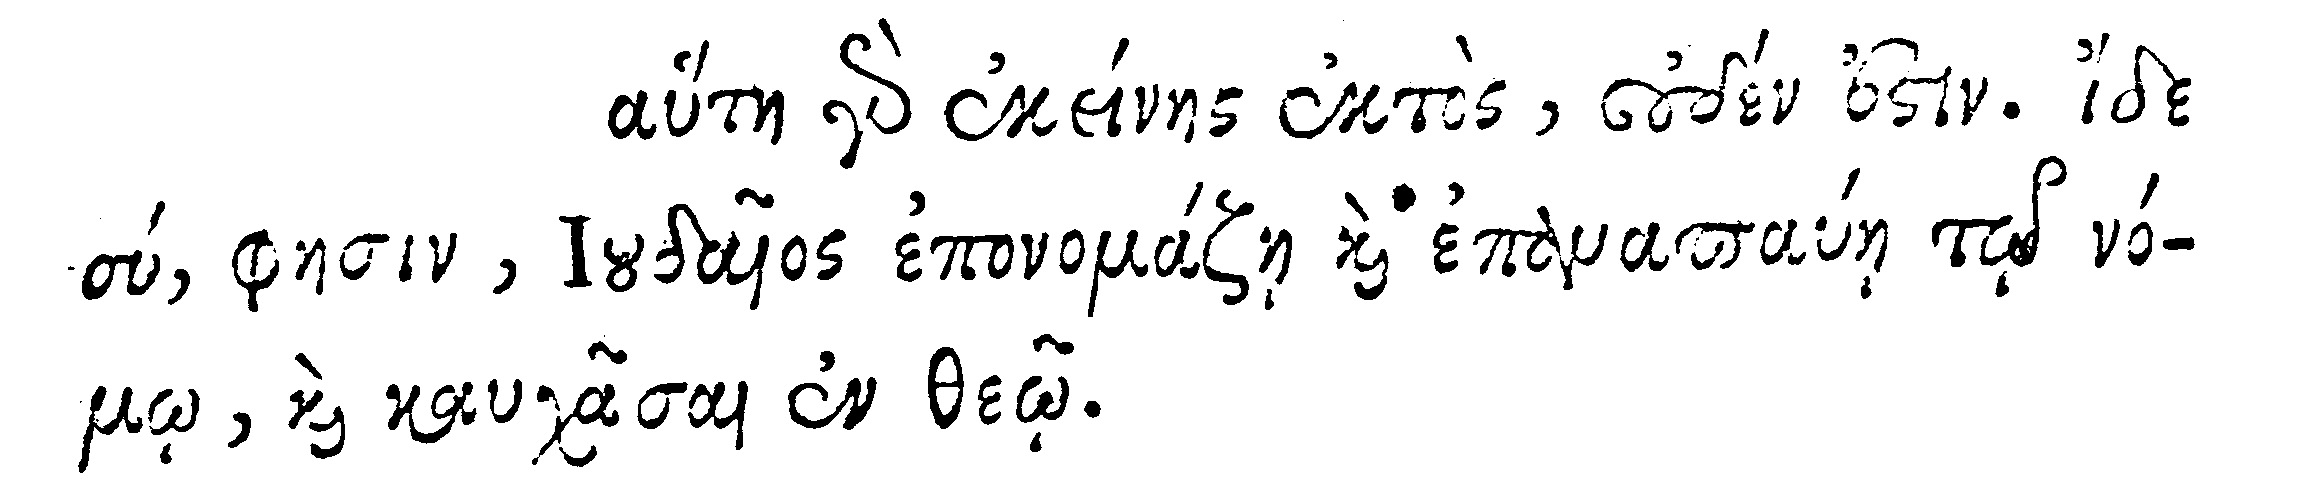 αὕτη γὰρ ἐκείνης ἐκτὸς, οὐδέν ἐστιν. ἴδε
σύ, φησιν, Ιουδαῖος ἐπονομάζῃ καὶ ἐπαναπαύῃ τῷ νό-
μῳ, καὶ καυχᾶσαι ἐν θεῷ.